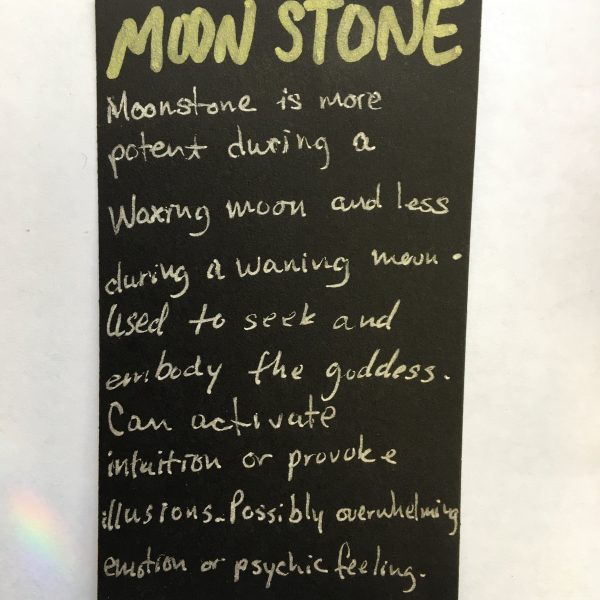 MOON STONE
Moonstone is more
potent during a
Waxing moon and less
during a waning moon.
Used to seek and
embody the goddess.
Can activate
intuition or provoke
illusions. Possibly overwhelming
emotion or psychic feeling.